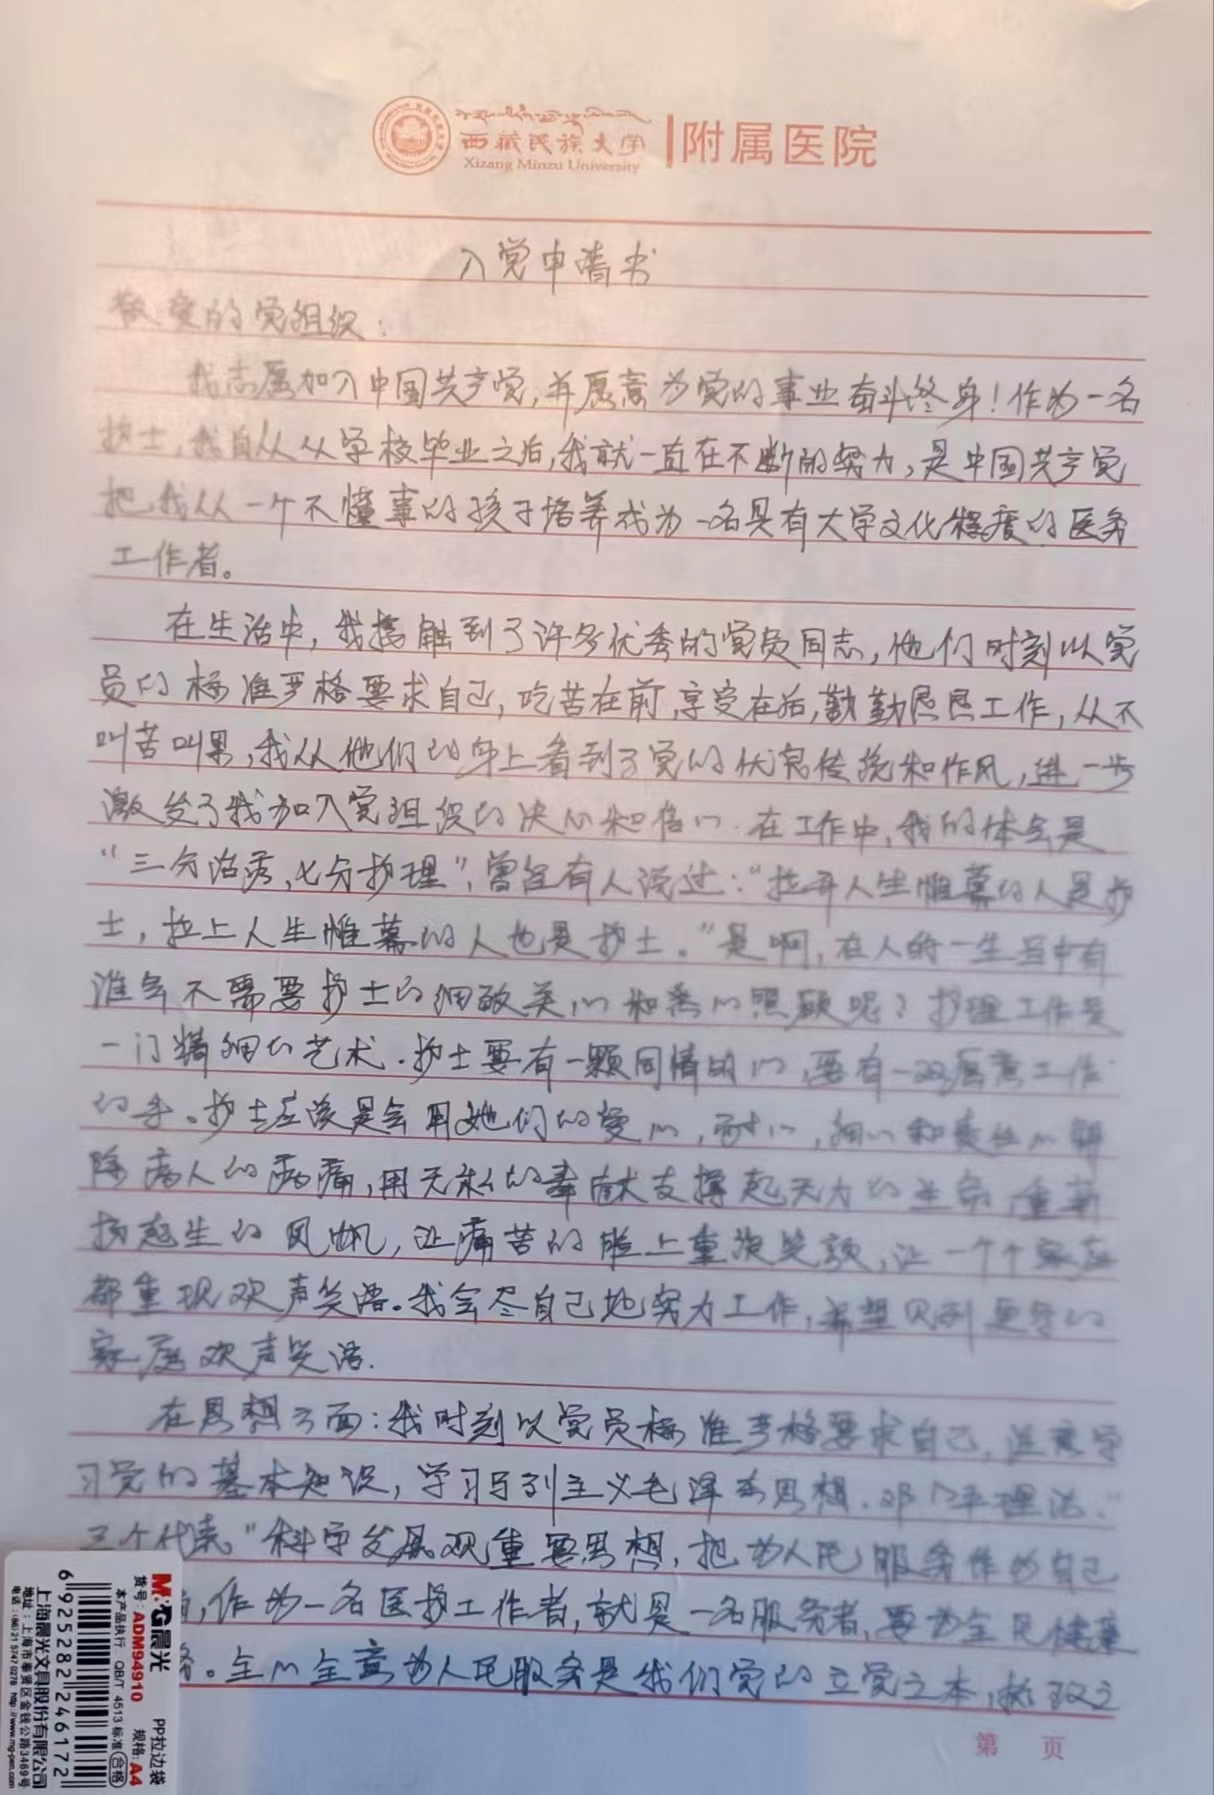 西藏民族大学
Xizang Minzu University
附属医院
入党申请书
敬爱的党组织：
我志愿加入中国共产党，并愿意为党的事业奋斗终身！作为一名
护士，我自从从学校毕业之后，我就一直在不断的努力，是中国共产党
把我从一个不懂事的孩子培养成为一名具有大学文化程度的医务
工作者。
在生活中，我接触到了许多优秀的党员同志，他们时刻以党
员的标准严格要求自己，吃苦在前，享受在后，勤勤恳恳工作，从不
叫苦叫累，我从他们的身上看到了党的优良传统和作风，进一步
激发了我加入党组织的决心和信心．在工作中，我的体会是
“三分治疗，七分护理”，曾经有人说过：“拉开人生帷幕的人是护
士，拉上人生帷幕的人也是护士。”是啊，在人的一生当中有
谁会不需要护士的细致关心和悉心照顾呢？护理工作是
一门精细的艺术．护士要有一颗同情的心，要有一双愿意工作
的手。护士应该是会用她们的爱心，耐心，细心和责任心解
除病人的病痛，用无私的奉献支撑起无力的生命，重新
扬起生的风帆，让痛苦的脸上重现笑颜，让一个个家庭
都重现欢声笑语。我会尽自己地努力工作，希望见到更多的
家庭欢声笑语．
在思想方面：我时刻以党员标准严格要求自己，注意学
习党的基本知识，学习马列主义毛泽东思想．邓小平理论．“
三个代表”科学发展观重要思想，把为人民服务作为自己
，作为一名医护工作者，就是一名服务者，要为全民健康
务。全心全意为人民服务是我们党的立党之本，执政之
第 页
M&G晨光
货号：ADM94910
PP拉边袋
规格：A4
本产品执行 QB/T 4513 标准 合格
6 925282 246172
上海晨光文具股份有限公司
地址：上海市奉贤区金钱公路3469号
电话：(86) 21 57470278 http://www.mg-pen.com